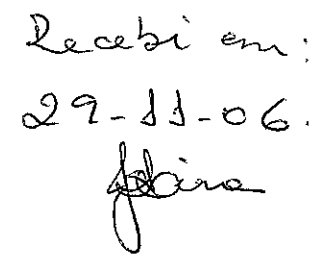 Recebi em:
29-11-06.